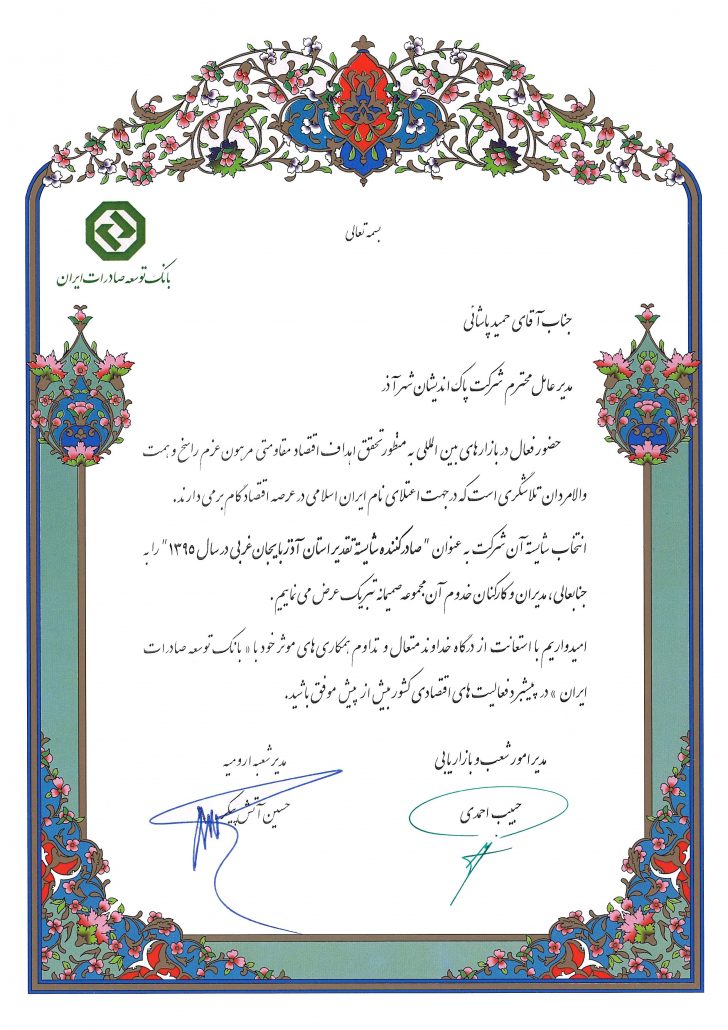 بسمه تعالی
بانک توسعه صادرات ایران
جناب آقای حمید پاشائی
مدیر عامل محترم شرکت پاک اندیشان شهر آذر
حضور فعال در بازارهای بین المللی به منظور تحقق اهداف اقتصاد مقاومتی مرهون عزم راسخ و همت
والامردان تلاشگری است که در جهت اعتلای نام ایران اسلامی در عرصه اقتصاد گام برمی دارند.
انتخاب شایسته آن شرکت به عنوان "صادرکننده شایسته تقدیر استان آذربایجان غربی در سال ۱۳۹۵" را به
جنابعالی، مدیران و کارکنان خدوم آن مجموعه صمیمانه تبریک عرض می نماییم.
امیدواریم با استعانت از درگاه خداوند متعال و تداوم همکاری های موثر خود با «بانک توسعه صادرات
ایران» در پیشبرد فعالیت های اقتصادی کشور بیش از پیش موفق باشید.
مدیر امور شعب و بازاریابی
حبیب احمدی
مدیر شعبه ارومیه
حسین آتش پیکر